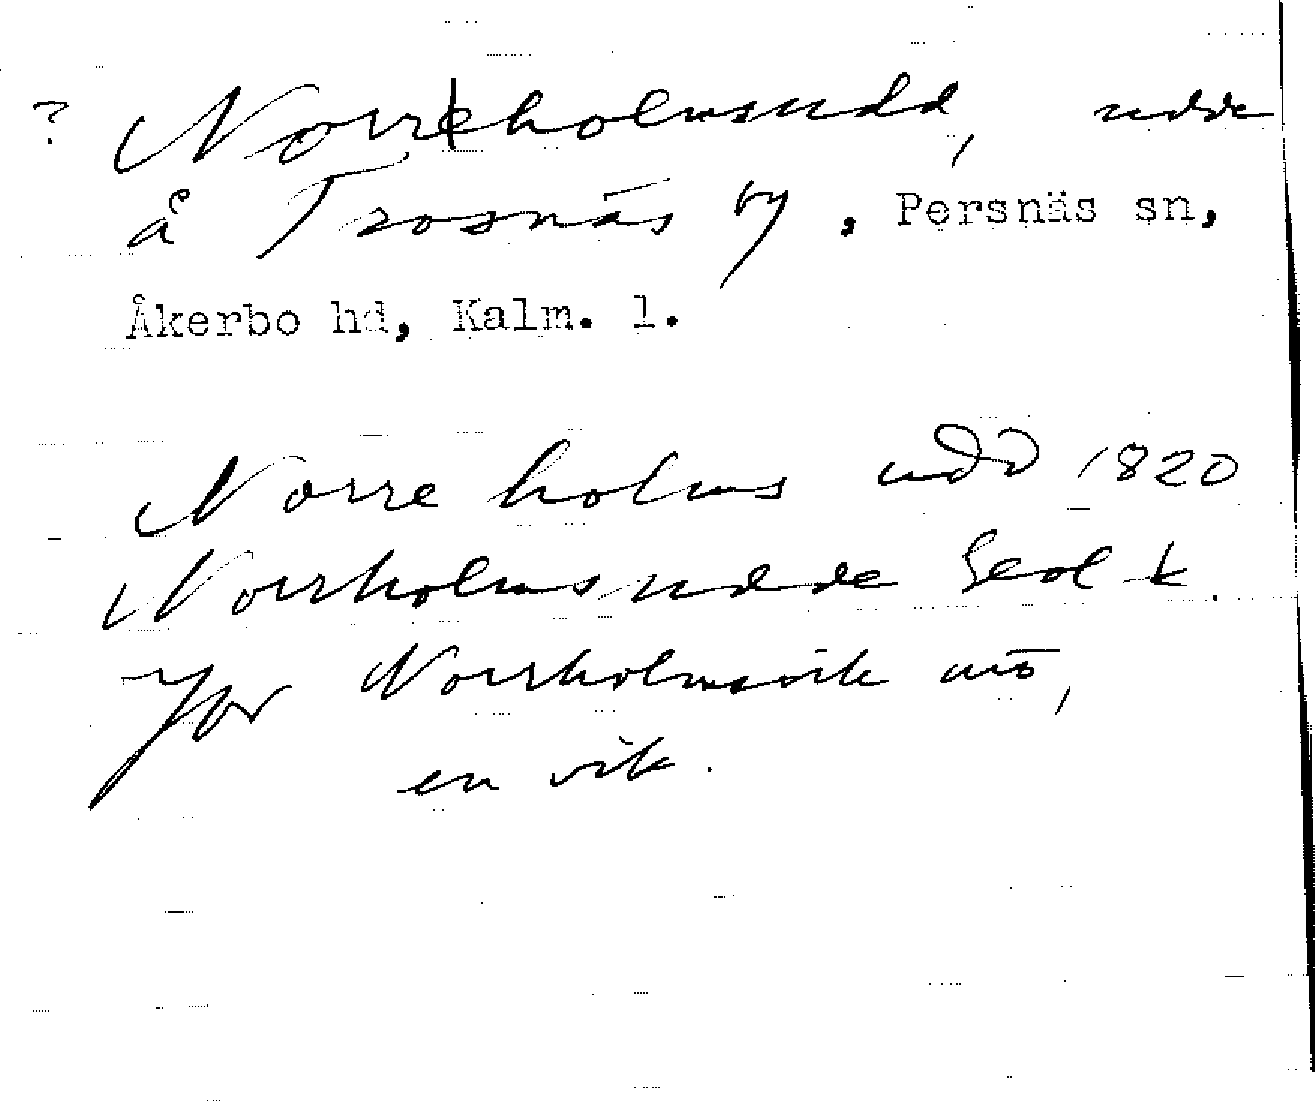 ? Norreholmsudd, udde
å Trosnäs by, Persnäs sn,
Åkerbo hd, Kalm. l.
Norre holms udd 1820
Norrholmsudde Geol k.
Jfr Norrholmsvik
en vik.